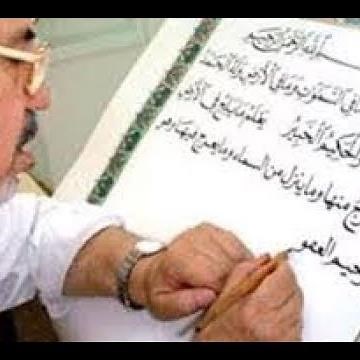 الله الرحمن الرحيم
في السموات وما في الأرض وله الحمد
الحكيم الخبير يعلم ما يلج في الأرض
منها وما ينزل من السماء وما يعرج فيها وهو
الغفو